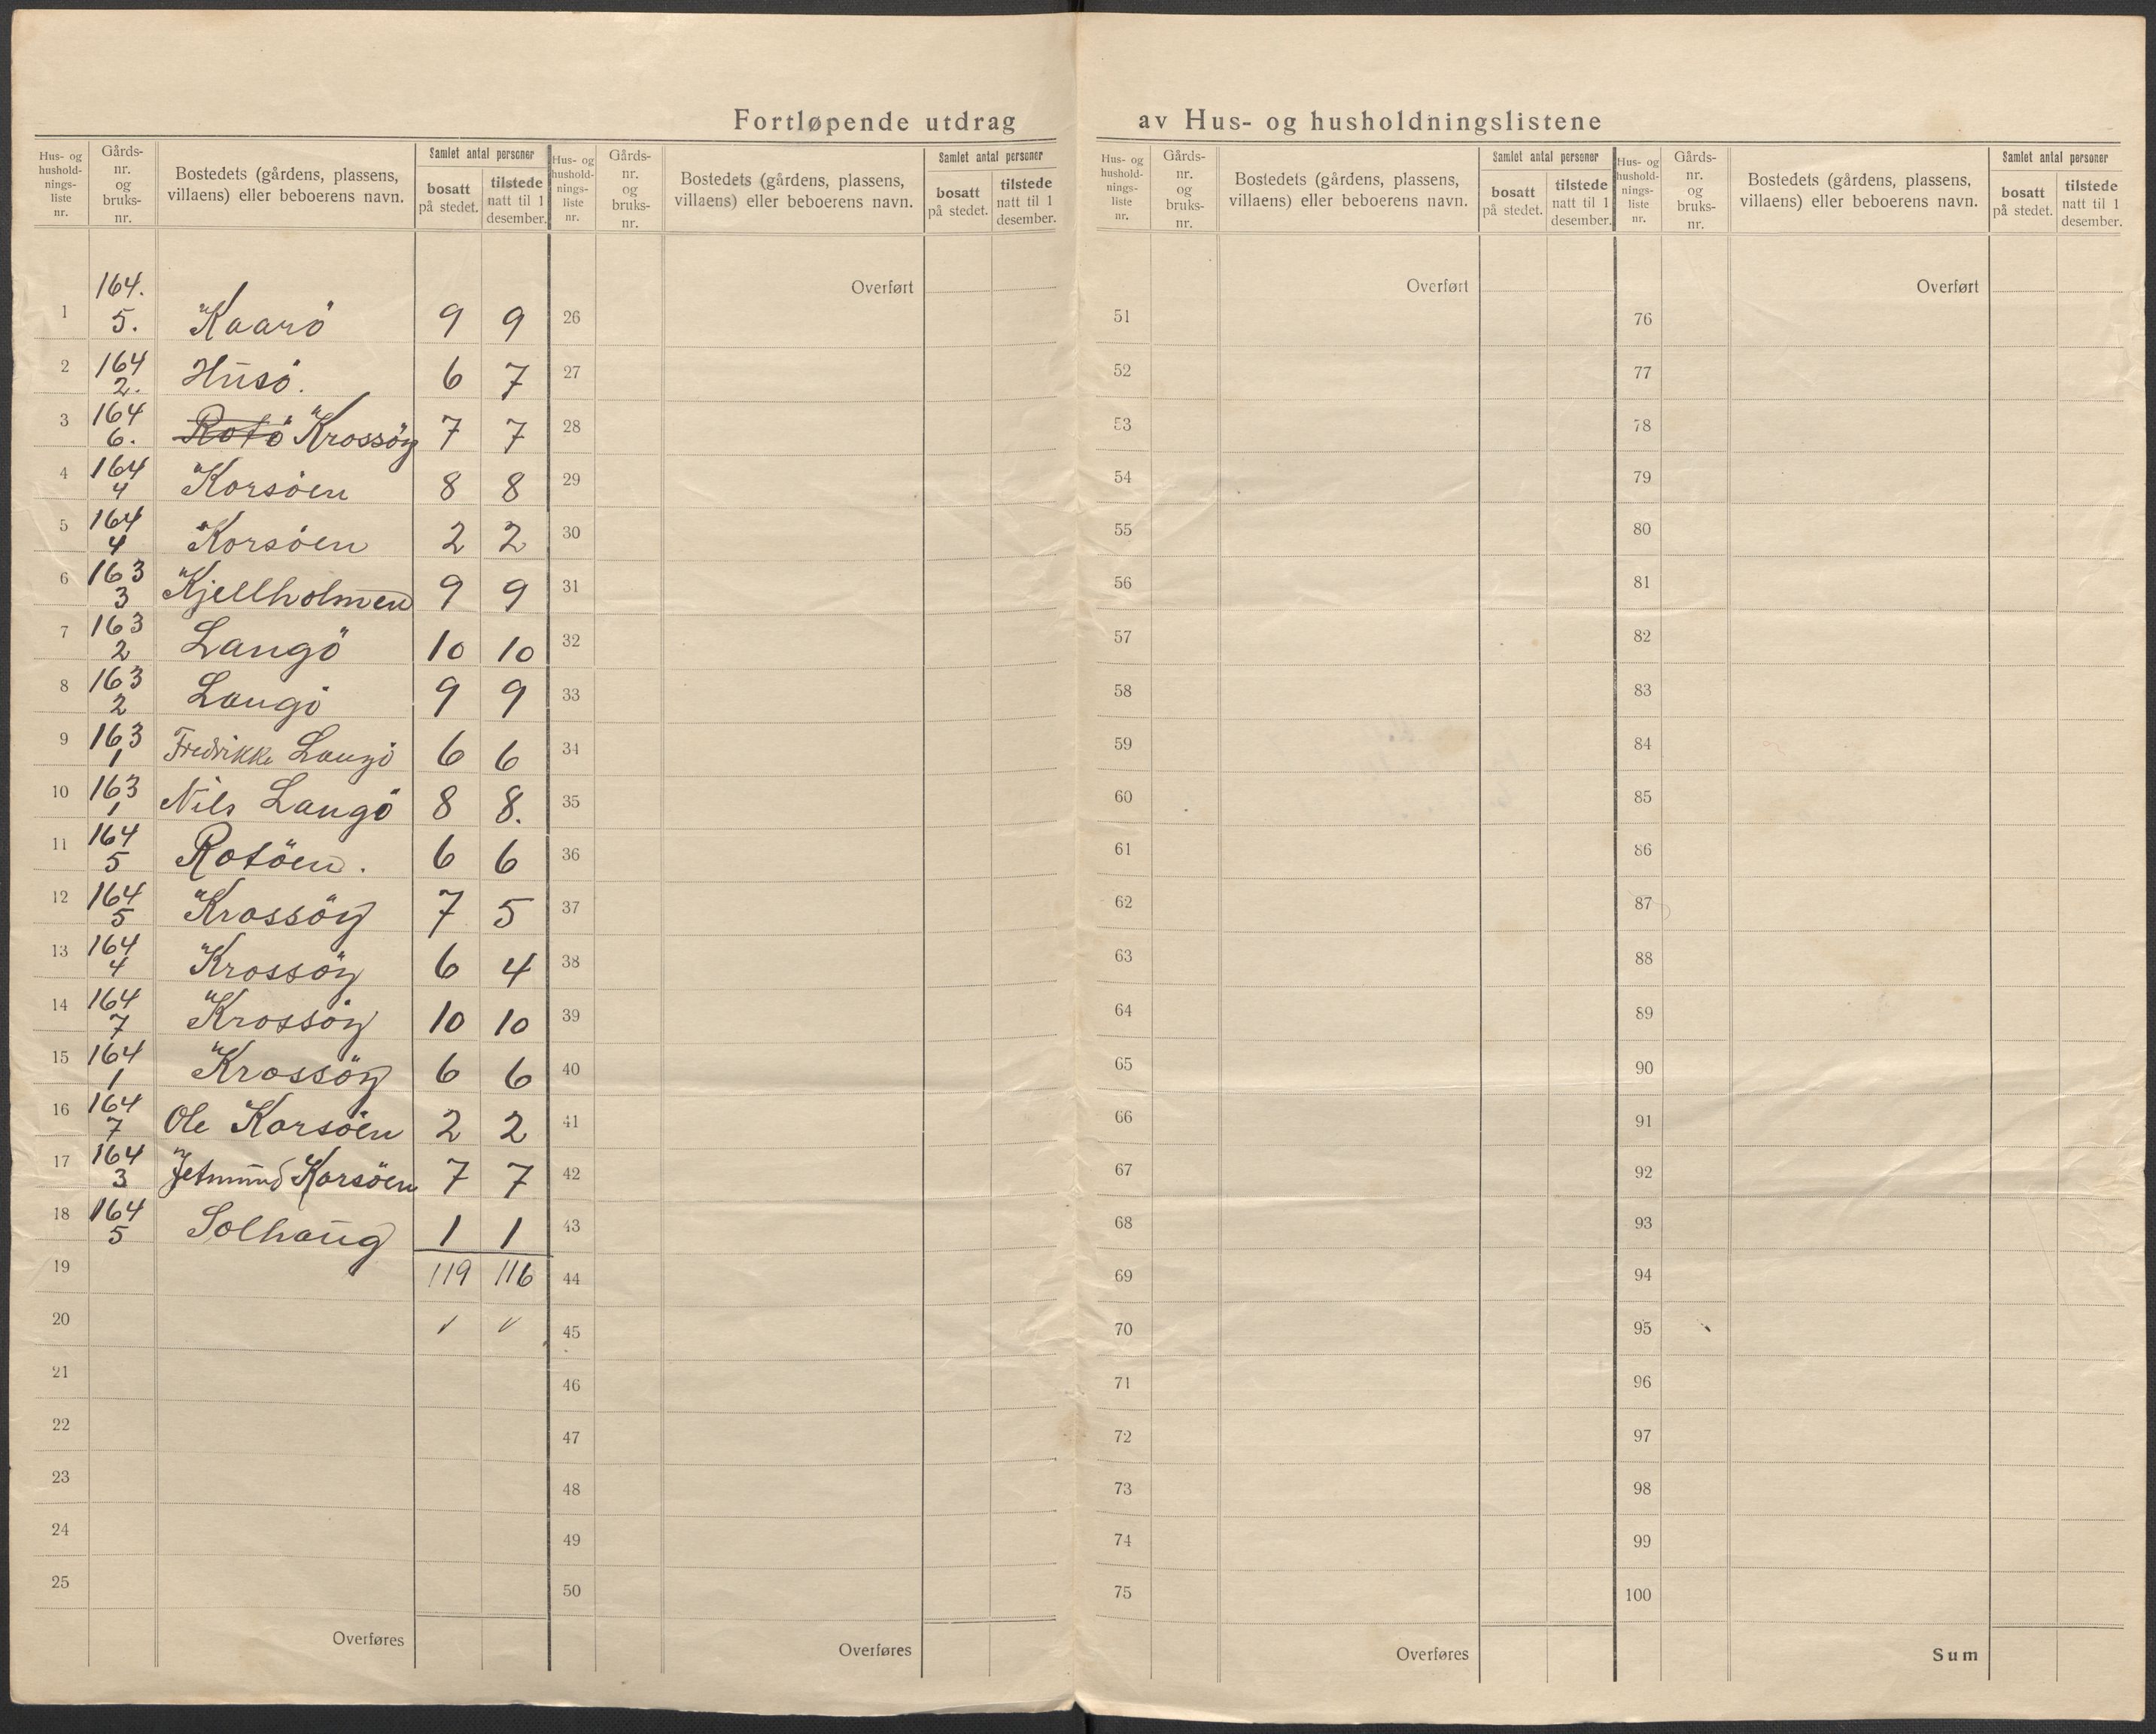 Fortløpende utdrag av Hus- og husholdningslistene
Hus- og hushold-nings-liste nr. | Gårds-nr. og bruks-nr. | Bostedets (gårdens, plassens, villaens) eller beboerens navn. | Samlet antal personer | bosatt på stedet. | tilstede natt til 1 desember.
Hus- og hushold-nings-liste nr. | Gårds-nr. og bruks-nr. | Bostedets (gårdens, plassens, villaens) eller beboerens navn. | Samlet antal personer | bosatt på stedet. | tilstede natt til 1 desember.
Hus- og hushold-nings-liste nr. | Gårds-nr. og bruks-nr. | Bostedets (gårdens, plassens, villaens) eller beboerens navn. | Samlet antal personer | bosatt på stedet. | tilstede natt til 1 desember.
Hus- og hushold-nings-liste nr. | Gårds-nr. og bruks-nr. | Bostedets (gårdens, plassens, villaens) eller beboerens navn. | Samlet antal personer | bosatt på stedet. | tilstede natt til 1 desember.
1 164. 5. Kaarö 9 9
2 164 2. Husö. 6 7
3 164 6. Rotö Krossöy 7 7
4 164 4 Korsöen 8 8
5 164 4 Korsöen 2 2
6 163 3 Kjellholmen 9 9
7 163 2 Langö 10 10
8 163 2 Langö 9 9
9 163 1 Fredrikke Langö 6 6
10 163 1 Nils Langö 8 8.
11 164 5 Rotöen. 6 6
12 164 5 Krossöy 7 5
13 164 4 Krossöy 6 4
14 164 7 Krossöy 10 10
15 164 1 Krossöy 6 6
16 164 7 Ole Korsöen 2 2
17 164 3 Jetmund Korsöen 7 7
18 164 5 Solhaug 1 1
19 119 116
20 ✓ ✓
21
22
23
24
25
Overføres
Overført
26
27
28
29
30
31
32
33
34
35
36
37
38
39
40
41
42
43
44
45
46
47
48
49
50
Overføres
Overført
51
52
53
54
55
56
57
58
59
60
61
62
63
64
65
66
67
68
69
70
71
72
73
74
75
Overføres
Overført
76
77
78
79
80
81
82
83
84
85
86
87
88
89
90
91
92
93
94
95
96
97
98
99
100
Sum